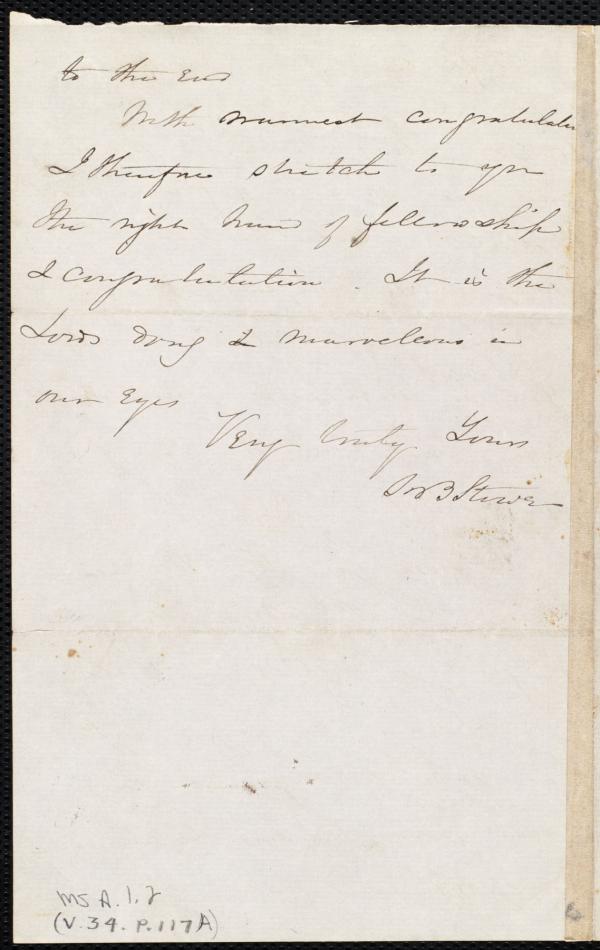 to the End
With warmest congratulation
I therefore stretch to you
the right hand of fellowship
& congratulation. It is the
Lords doing & marvelous in
our Eyes
Very truly Yours
H B Stowe
MS A.1.2
(V.34. P.117A)